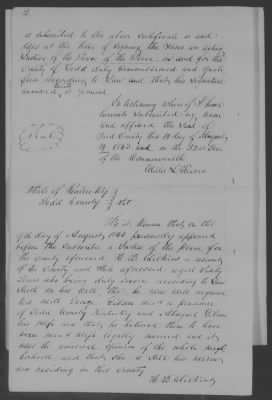 2.
is subscribed to the above Certificate is and
was at the time of signing the same an acting
Justice of the Peace in and for the
County of Todd duly Commissioned and qual-
ified according to Law and that his Signature
thereto
annexed is genuine
In testimony whereof I have
hereunto Subscribed my name
and affixed the Seal of
Said County this day of August
1843 and in the 52nd year
of the Commonwealth
Seal
State of Kentucky
Todd County Sct
Be it Known that on the
day of August 1843 personally appeared
before the Subscriber a Justice of the Peace for
the County aforesaid H. B. Wilkins a resident
of the County and State aforesaid aged Sixty
years who being duly Sworn according to Law
saith on his oath that he was well acquain-
ted with George Gibson decd a pensioner
of Todd County Kentucky and Abigail Gibson
his wife and that he believed them to have
been man & wife legally married and it
was the universal opinion of the whole neigh-
borhood and that she is still his widow
now residing in this County
H. B. Wilkins